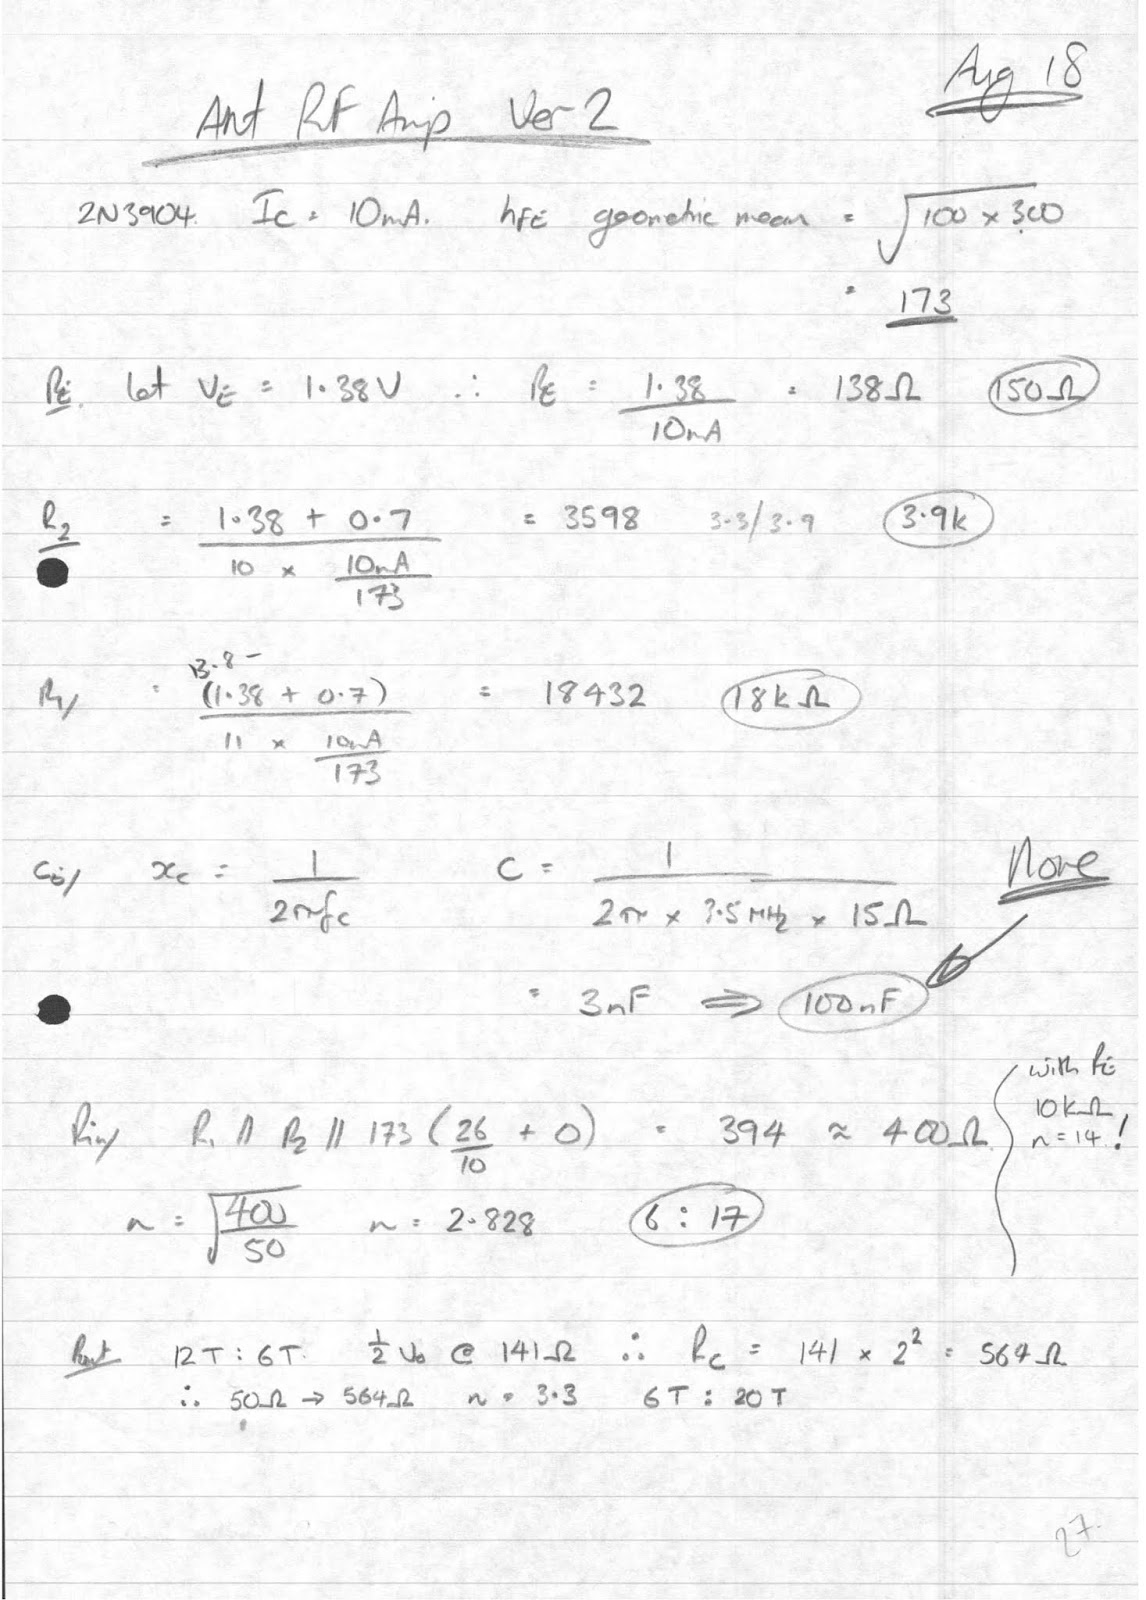 Aug 18
Ant RF Amp Ver 2
2N3904. Ic = 10mA. hFE geometric mean = √(100 x 300)
= 173
RE. let VE = 1.38V ∴ RE = 1.38 / 10mA = 138Ω 150Ω
R2 = (1.38 + 0.7) / (10 x 10mA/173) = 3598 3.3/3.9 3.9k
13.8 -
R1/ = (1.38 + 0.7) / (11 x 10mA/173) = 18432 18kΩ
CE/ xc = 1 / 2πfc C = 1 / (2π x 3.5MHz x 15Ω) None
= 3nF ⇒ 100nF
with RE
10kΩ
n=14!
Rin/ R1 // R2 // 173 (26/10 + 0) = 394 ≈ 400Ω
n = √(400/50) n = 2.828 6:17
Rout 12T : 6T. ½ Vo @ 141Ω ∴ Rc = 141 x 2² = 564Ω
∴ 50Ω → 564Ω n = 3.3 6T : 20T
27.